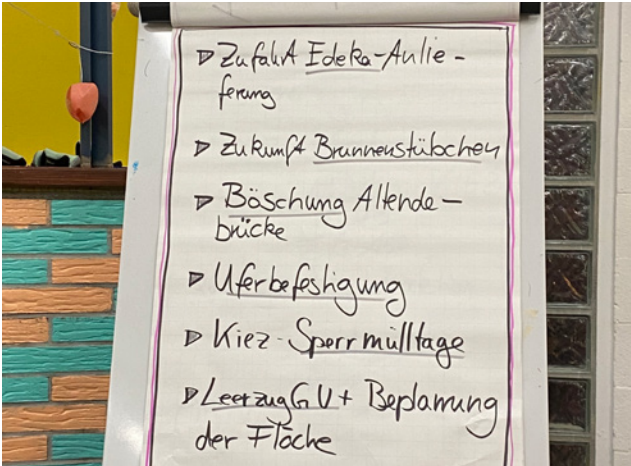 Zufahrt Edeka-Anlie-
ferung
Zukunft Brunnenstübchen
Böschung Allende-
brücke
Uferbefestigung
Kiez-Sperrmülltage
Leerzug GU + Beplanung
der Fläche